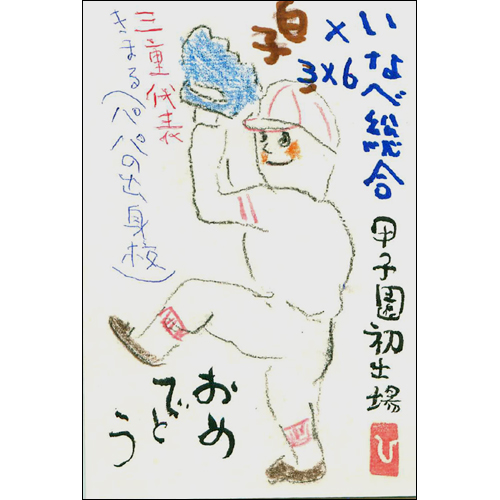 いなべ総合
×
3×6
白子
甲子園初出場
ひ
三重代表
きまる(パパの出身校)
おめ
でと
う